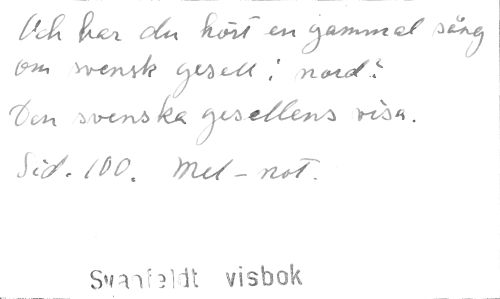 Och har du hört en gammal sång
om svensk gesell i nord?
Den svenska gesellens visa.
Sid. 100. Mel-not.
Svanfeldt visbok